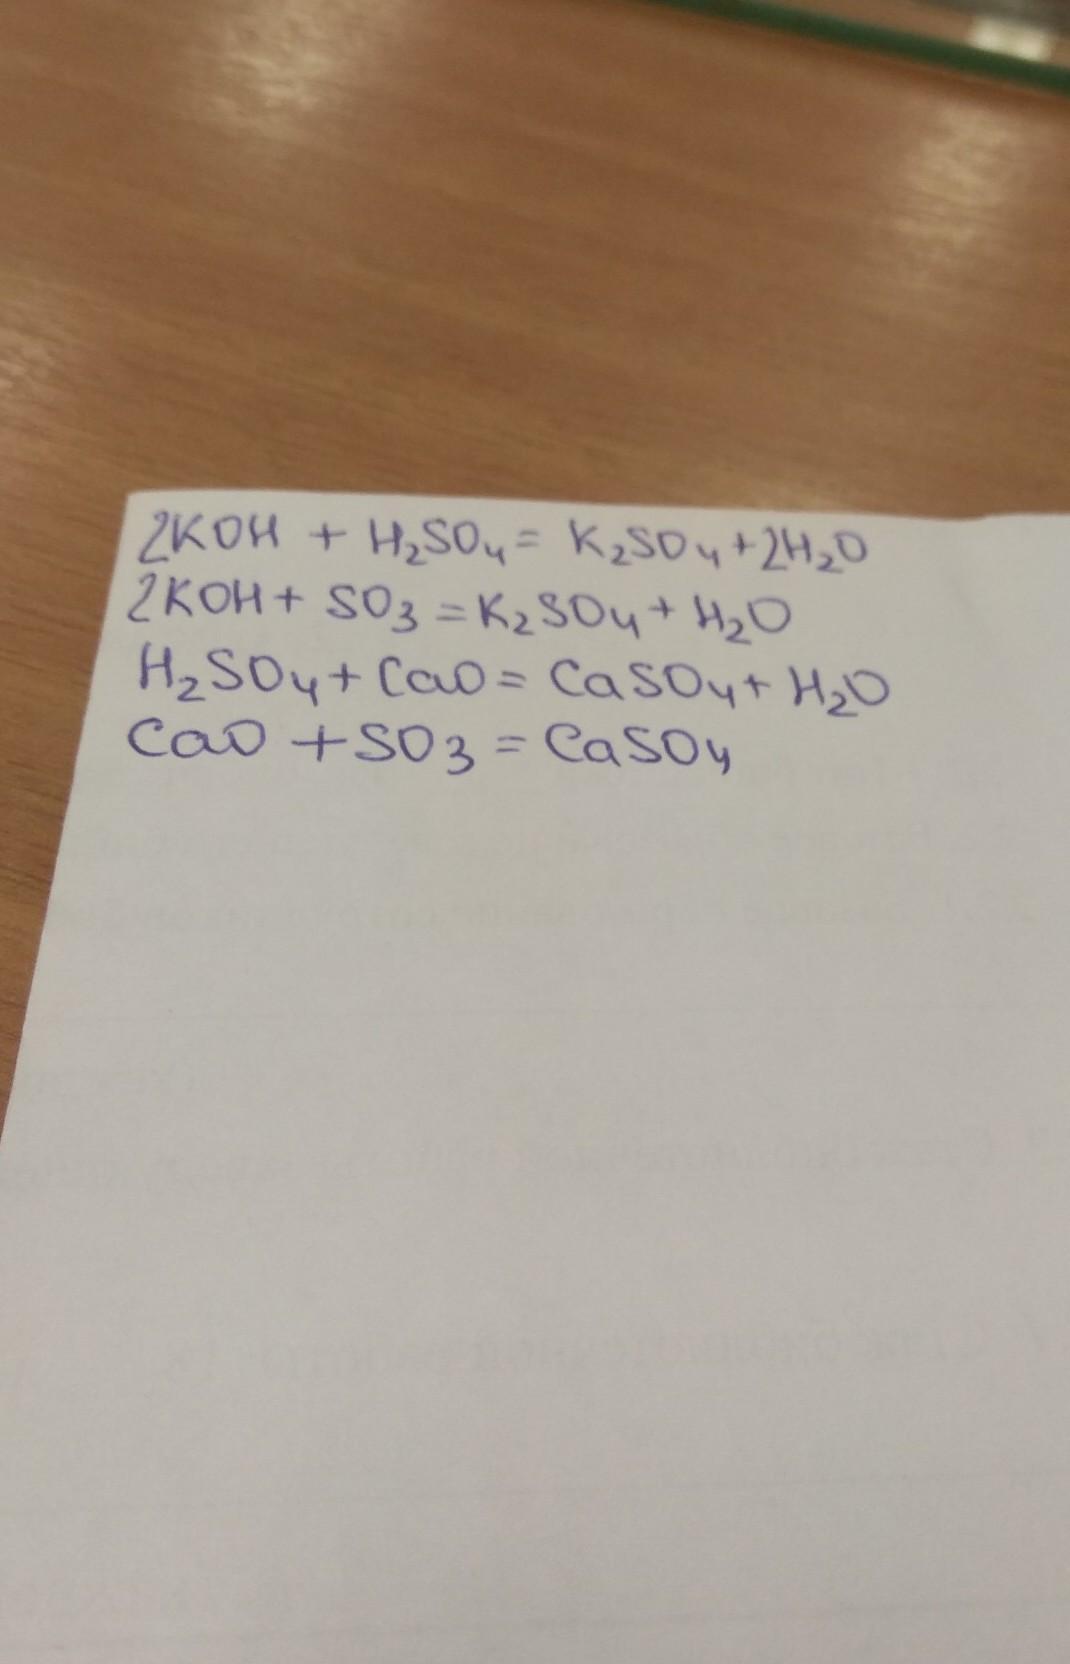 2KOH + H₂SO₄ = K₂SO₄ + 2H₂O
2KOH + SO₃ = K₂SO₄ + H₂O
H₂SO₄ + CaO = CaSO₄ + H₂O
CaO + SO₃ = CaSO₄